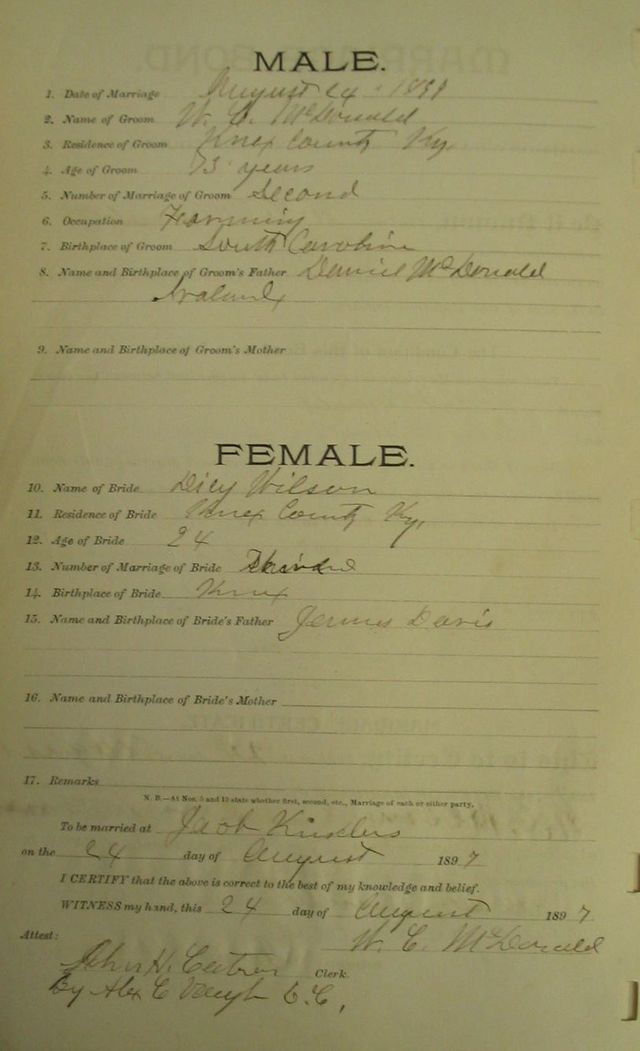 MALE.
1. Date of Marriage August 24 1897
2. Name of Groom W. C. McDonald
3. Residence of Groom Knox County Ky.
4. Age of Groom 73 years
5. Number of Marriage of Groom Second
6. Occupation Farming
7. Birthplace of Groom South Carolina
8. Name and Birthplace of Groom's Father Daniel McDonald
Iraland
9. Name and Birthplace of Groom's Mother
FEMALE.
10. Name of Bride Dicy Wilson
11. Residence of Bride Knox County Ky,
12. Age of Bride 24
13. Number of Marriage of Bride
14. Birthplace of Bride Knox
15. Name and Birthplace of Bride's Father Davis
16. Name and Birthplace of Bride's Mother
17. Remarks
N. B.—At Nos. 5 and 13 state whether first, second, etc., Marriage of each or either party.
To be married at Jacob
on the 24 day of August 1897
I CERTIFY that the above is correct to the best of my knowledge and belief.
WITNESS my hand, this 24 day of August 1897
Attest: W. C. McDonald
John H. Catron Clerk.
By Alex C D.C.,